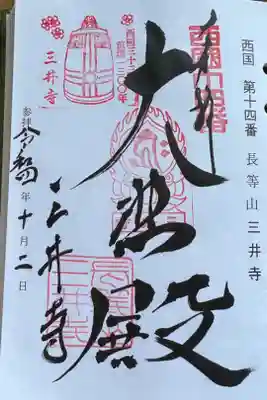 西国 第十四番 長等山 三井寺
西国十四番
奉拝
大悲殿
三井寺
西国三十三所
草創一三〇〇年
三井寺
参拝 令和四年十月二日